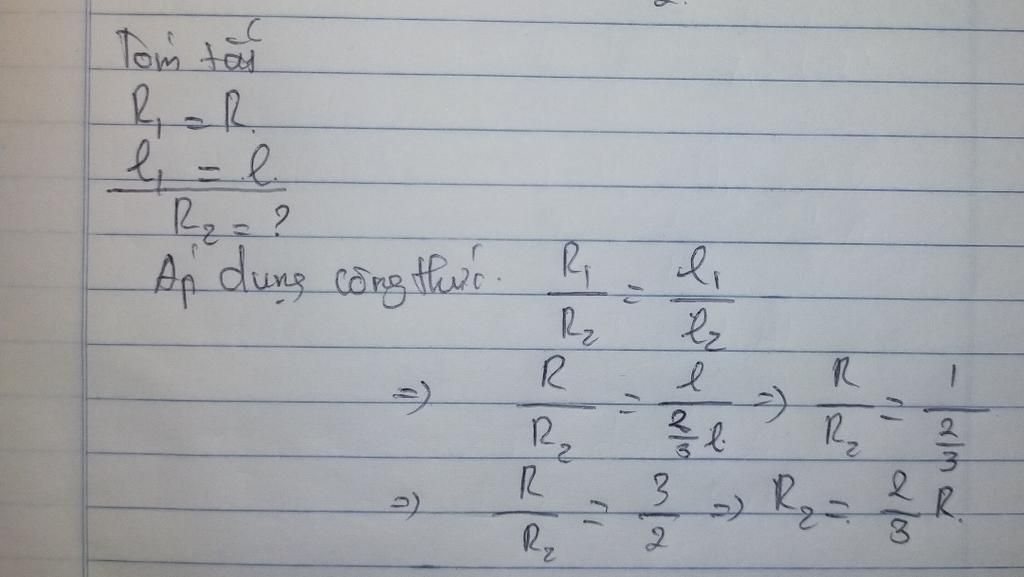 Tóm tắt
R₁ = R.
l₁ = l.
R₂ = ?
Áp dụng công thức. R₁/R₂ = l₁/l₂
=> R/R₂ = l/(2/3 l.) => R/R₂ = 1/(2/3)
=> R/R₂ = 3/2 => R₂ = 2/3 R.